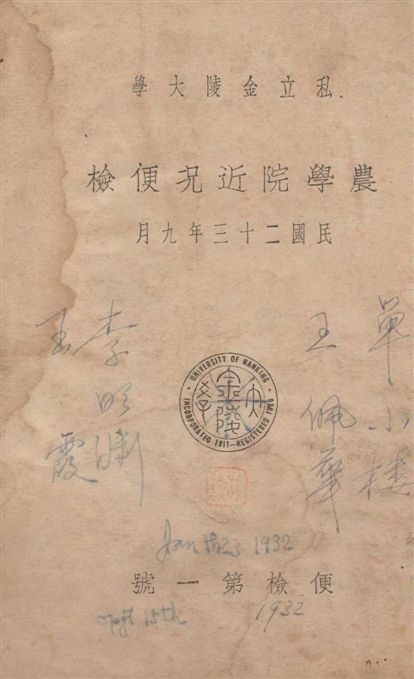 私立金陵大學
農學院近況便檢
民國二十三年九月
單小樓
王佩華
李明渊
王霞
UNIVERSITY OF NANKING
INCORPORATED 1911—REGISTERED 1928
金陵大學
1932
便檢第一號
15th
1932